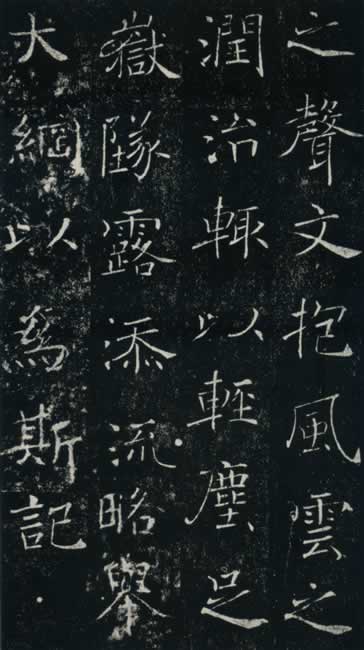 之聲文抱風雲之
潤治輒以輕塵足
嶽隊露添流略舉
大綱以爲斯記